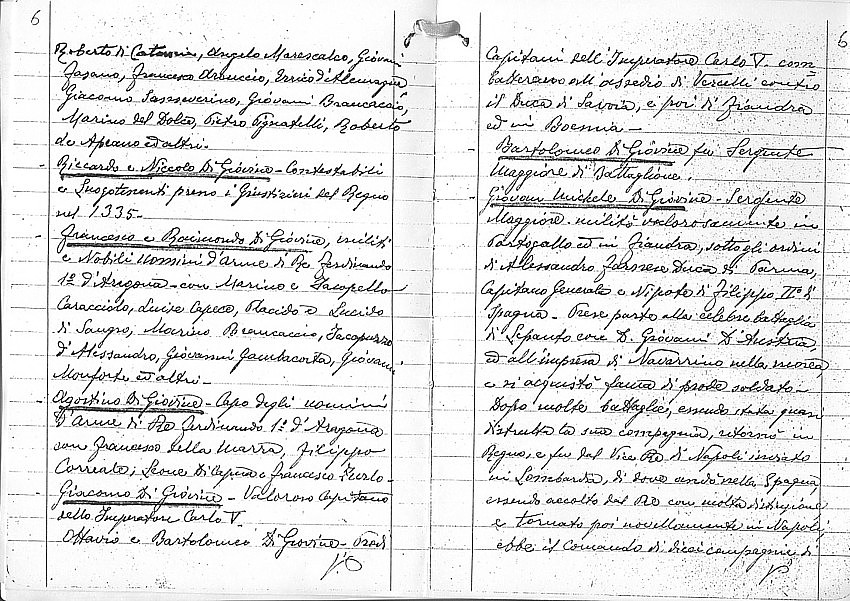 6
Roberto di Catania, Angelo Marescalco, Giovanni
Fasano, Francesco Arbuccio, Errico d'Alemagna
Giacomo Sanseverino, Giovanni Brancaccio,
Marino del Dolce, Pietro Pignatelli, Roberto
de Apeano ed altri.
Riccardo e Niccolo Di Giovine - Contestabili
e Luogotenenti presso i Giustizieri del Regno
nel 1335-
Francesco e Raimondo Di Giovine, militi
e Nobili uomini d'Arme di Re Ferdinando
1° d'Aragona - con Marino e Jacopello
Caracciolo, Luise Capece, Placido e Lucido
di Sangro, Marino Brancaccio, Jacopuzzo
d'Alessandro, Giovanni Gambacorta, Giovanni
Monforte ed altri -
Agostino Di Giovine - Capo degli uomini
D'Arme di Re Ferdinando 1° d'Aragona
con Francesco della Marra, Filippo
Correale, Leone Di Capua e Francesco Zurlo -
Giacomo Di Giovine - Valoroso Capitano
dello Imperatore Carlo V.
Ottavio e Bartolomeo Di Giovine - Prodi
6
Capitani dell'Imperatore Carlo V. com=
batterono all'assedio di Vercelli contro
il Duca di Savoia, e poi di Fiandra
ed in Boemia -
Bartolomeo Di Giovine fu Sergente
Maggiore di Battaglione.
Giovan Michele Di Giovine - Sergente
Maggiore - militò valorosamente in
Portogallo ed in Fiandra, sotto gli ordini
di Alessandro Farnese Duca di Parma,
Capitano Generale e Nipote di Filippo II° di
Spagna - Prese parte alla celebre battaglia
di Lepanto con D. Giovanni D'Austria,
ed all'impresa di Navarrino nella morea,
e si acquistò fama di prode soldato -
Dopo molte battaglie, essendo stata quasi
distrutta la sua compagnia, ritornò in
Regno, e fu dal Vice Re di Napoli inviato
in Lombardia, di dove andò nella Spagna,
essendo accolto dal Re con molta distinzione
e tornato poi novellamente in Napoli,
ebbe il Comando di dieci compagnie di